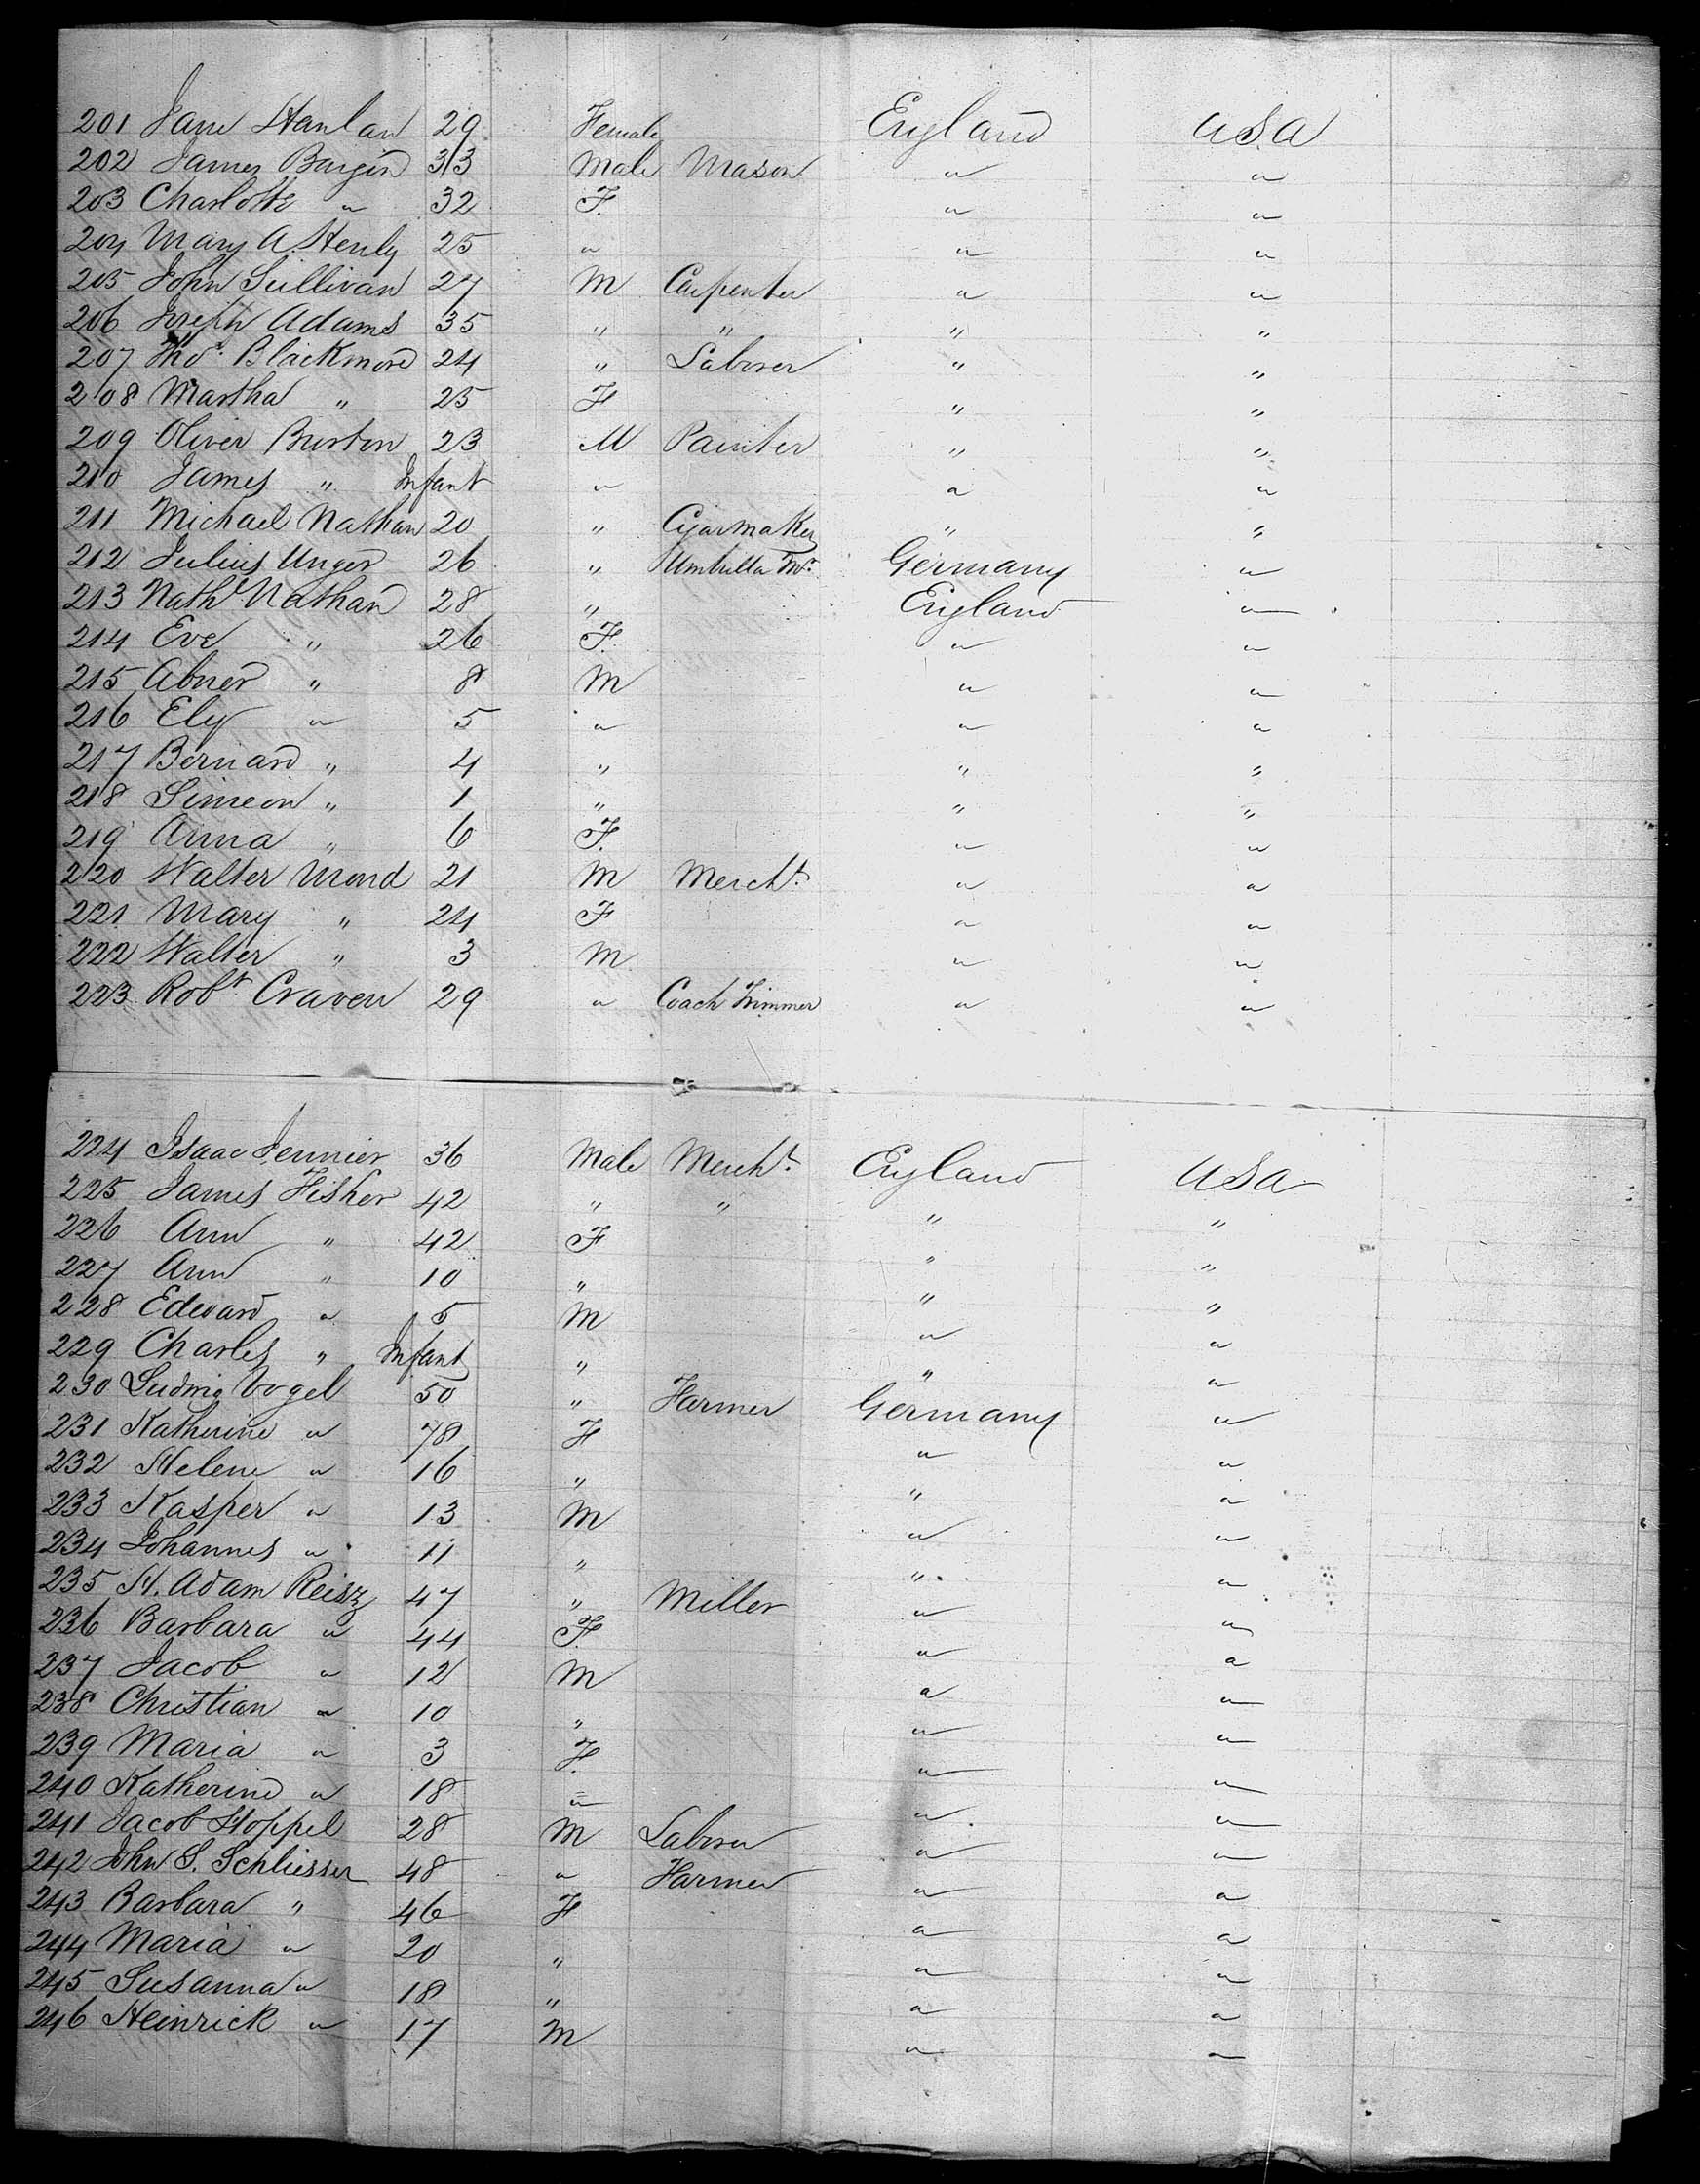 201 Jane Hanlan 29 Female England USA
202 James Burgin 33 Male Mason " "
203 Charlotte " 32 F. " "
204 Mary A. Henly 25 " " "
205 John Sullivan 27 M Carpenter " "
206 Joseph Adams 35 " " " "
207 Thos. Blackmore 24 " Laborer " "
208 Martha " 25 F " "
209 Oliver Burton 23 M Painter " "
210 James " Infant " " "
211 Michael Nathan 20 " Cigarmaker " "
212 Julius Unger 26 " Umbrella Mr. Germany "
213 Nathl Nathan 28 " England "
214 Eve " 26 F. " "
215 Abner " 8 M " "
216 Ely " 5 " " "
217 Bernard " 4 " " "
218 Simeon " 1 " " "
219 Anna " 6 F. " "
220 Walter Mond 21 M Mercht. " "
221 Mary " 24 F " "
222 Walter " 3 M " "
223 Robt Craven 29 " Coach Trimmer " "
224 Isaac 36 Male Mercht. England USA
225 James Fisher 42 " " " "
226 Ann " 42 F " "
227 Ann " 10 " " "
228 Edward " 5 M " "
229 Charles " Infant " " "
230 Ludwig Vogel 50 " Farmer Germany "
231 Katherine " 78 F " "
232 Helene " 16 " " "
233 Kasper " 13 M " "
234 Johannes " 11 " " "
235 H. Adam Reisz 47 " Miller " "
236 Barbara " 44 F. " "
237 Jacob " 12 M " "
238 Christian " 10 " " "
239 Maria " 3 F. " "
240 Katherine " 18 " " "
241 Jacob Hoppel 28 M Laborer " "
242 John S. Schliesser 48 " Farmer " "
243 Barbara " 46 F " "
244 Maria " 20 " " "
245 Susanna " 18 " " "
246 Heinrick " 17 M " "